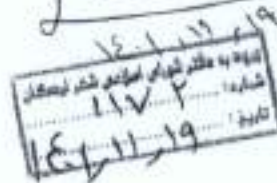 ۱۴۰۱,۱۱,۱۹
ورود به دفتر شورای اسلامی شهر
شماره: ۱۱۷۲
تاریخ: ۱۴۰۱,۱۱,۱۹